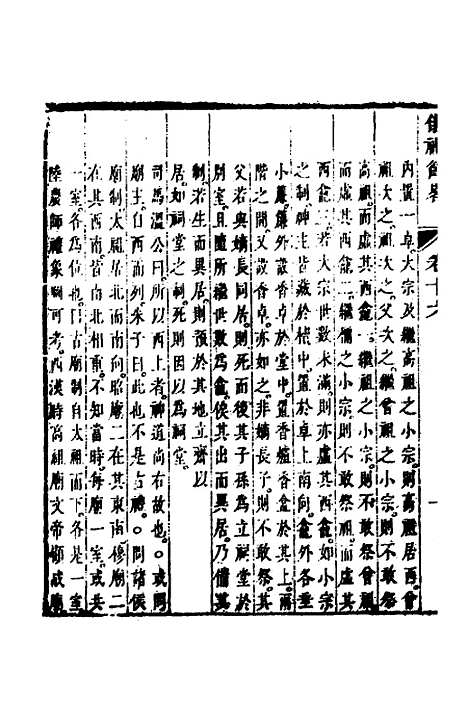 儀禮節畧 卷十六 一
內置一卓大宗及繼高祖之小宗則高祖居西曾
祖次之祖次之父次之繼曾祖之小宗則不敢祭
高祖而虛其西龕一繼祖之小宗則不敢祭曾祖
而虛其西龕二繼禰之小宗則不敢祭祖而虛其
西龕三若大宗世數未滿則亦虛其西龕如小宗
之制神主皆藏於櫝中置於卓上南向龕外各垂
小簾簾外設香卓於堂中置香爐香盒於其上兩
階之間又設香卓亦如之非嫡長子則不敢祭其
父若與嫡長同居則死而後其子孫為立祠堂於
別室且隨所繼世數為龕俟其出而異居乃備其
制若生而異居則預於其地立齋以
居如祠堂之制死則因以為祠堂
司馬溫公曰所以西上者神道尚右故也○或問
廟主自西而列朱子曰此也不是古禮○問諸侯
廟制太祖居北而南向昭廟二在其東南穆廟二
在其西南皆南北相重不知當時每廟一室或共
一室各為位也曰古廟制自太祖而下各是一室
陸農師禮象圖可考西漢時高祖廟文帝顧成廟